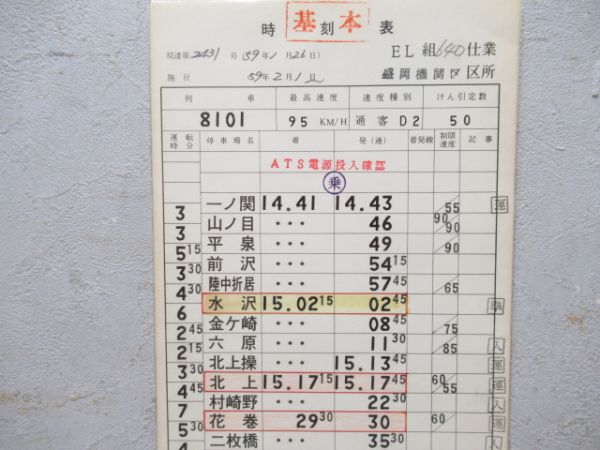 時 基 刻 本 表
局達第 2431 号(59年1月26日)
EL 組 640 仕業
施行 59年2月1日
盛岡機関区 区所
列 車 最高速度 速度種別 けん引定数
8101 95 KM/H 通客 D2 50
運転時分 停車場名 着 発(通) 着発線 制限速度 記事
ATS電源投入確認
乗
一ノ関 14.41 14.43 55
3 山ノ目 ・・・ 46 90
3 平泉 ・・・ 49 90
5 15 前沢 ・・・ 54 15
3 30 陸中折居 ・・・ 57 45 65
4 30 水沢 15.02 15 02 45
6 金ケ崎 ・・・ 08 45 75
2 45 六原 ・・・ 11 30 85 入
2 15 北上操 ・・・ 15.13 45 運
3 30 北上 15.17 15 15.17 45 60 55 運
4 45 村崎野 ・・・ 22 30 入
7 花巻 29 30 30 60 運
5 30 二枚橋 ・・・ 35 30 入
4